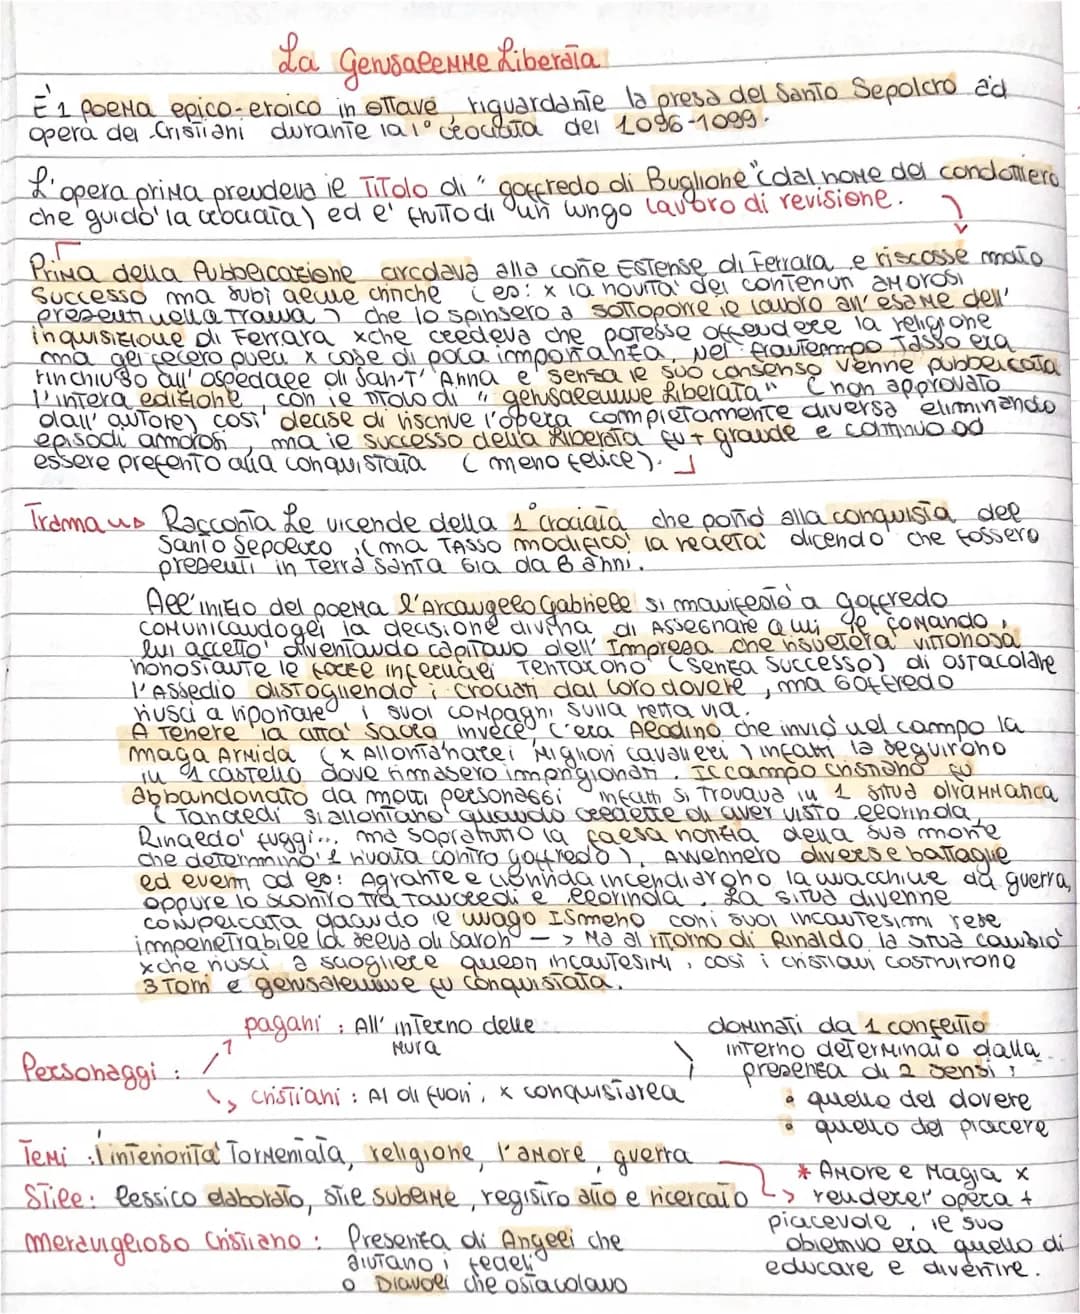 La Gerusalemme Liberata
È 1 poema epico-eroico in ottave riguardante la presa del Santo Sepolcro ad
opera dei Cristiani durante la 1° crociata del 1096-1099.
L'opera prima prendeva il Titolo di "goffredo di Buglione" (dal nome del condottiero
che guidò la crociata) ed e' frutto di un lungo lavoro di revisione.
Prima della Pubblicazione circolava alla corte Estense di Ferrara e riscosse molto
successo ma subì alcune critiche (es: x la novità dei contenuti amorosi
presenti nella trama) che lo spinsero a sottoporre il lavoro all'esame dell'
inquisizione di Ferrara xche credeva che potesse offendere la religione
ma gli fecero puen x cose di poca importanza. Nel frattempo Tasso era
rinchiuso all'ospedale di San T' Anna e senza il suo consenso venne pubblicata
l'intera edizione con il titolo di "gerusalemme Liberata" (non approvato
dall'autore) così decise di riscrive l'opera completamente diversa eliminando
episodi amorosi, ma il successo della Liberata fu + grande e continuo ad
essere preferito alla conquistata (meno felice).
Trama Racconta Le vicende della 1° crociata che portò alla conquista del
Santo Sepolcro, (ma Tasso modificò la realtà dicendo che fossero
presenti in Terra Santa Gia da 6 anni.
All'inizio del poema l'Arcangelo Gabriele si manifestò a goffredo
comunicandogli la decisione divina di Assegnare a lui il comando,
lui accettò diventando capitano dell'Impresa che risulterà vittoriosa
nonostante le forze infernali Tentarono (senza successo) di ostacolare
l'Assedio distogliendo i crociati dal loro dovere, ma Goffredo
riusci a riportare i suoi compagni sulla retta via.
A tenere la città Sacra invece c'era Aladino che inviò nel campo la
maga Armida (x Allontanare i Migliori cavalieri) infatti la seguirono
in 1 castello dove rimasero imprigionati. Il campo cristiano fu
abbandonato da molti personaggi infatti si trovava in 1 situa drammatica
(Tancredi si allontanò quando credette di aver visto clorinda,
Rinaldo fuggi... ma sopratutto la falsa notizia della sua morte
che determinò 1 rivolta contro goffredo). Avvennero diverse battaglie
ed eventi ad es: Agrante e clorinda incendiarono la macchine da guerra,
oppure lo scontro tra Tancredi e clorinda. La situa divenne
complicata quando il mago Ismeno con i suoi incantesimi rese
impenetrabile la selva di Saron -> Ma al ritorno di Rinaldo la situa cambiò
xche riusci a sciogliere questi incantesimi, così i cristiani costruirono
3 Torri e gerusalemme fu conquistata.
Personaggi:
pagani: All'interno delle
Mura
cristiani: Al di fuori, x conquistarea
dominati da 1 conflitto
interno determinato dalla
presenza di 2 sensi:
• quello del dovere
• quello del piacere
Temi: l'interiorità Tormentata, religione, l'amore, guerra
Stile: lessico elaborato, stile sublime, registro alto e ricercato
* Amore e Magia x
rendere l'opera +
piacevole, il suo
obiettivo era quello di
educare e divertire.
meraviglioso Cristiano: Presenza di Angeli che
aiutano i fedeli
o Diavoli che ostacolavo